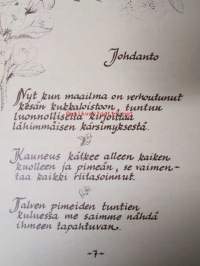 Johdanto
Nyt kun maailma on verhoutunut
kesän kukkaloistoon, tuntuu
luonnolliselta kirjoittaa
lähimmäisen kärsimyksestä.
Kauneus kätkee alleen kaiken
kuolleen ja pimeän, se vaimen-
taa kaikki riitasoinnut.
Talven pimeiden tuntien
kuluessa me saimme nähdä
ihmeen tapahtuvan.
-7-